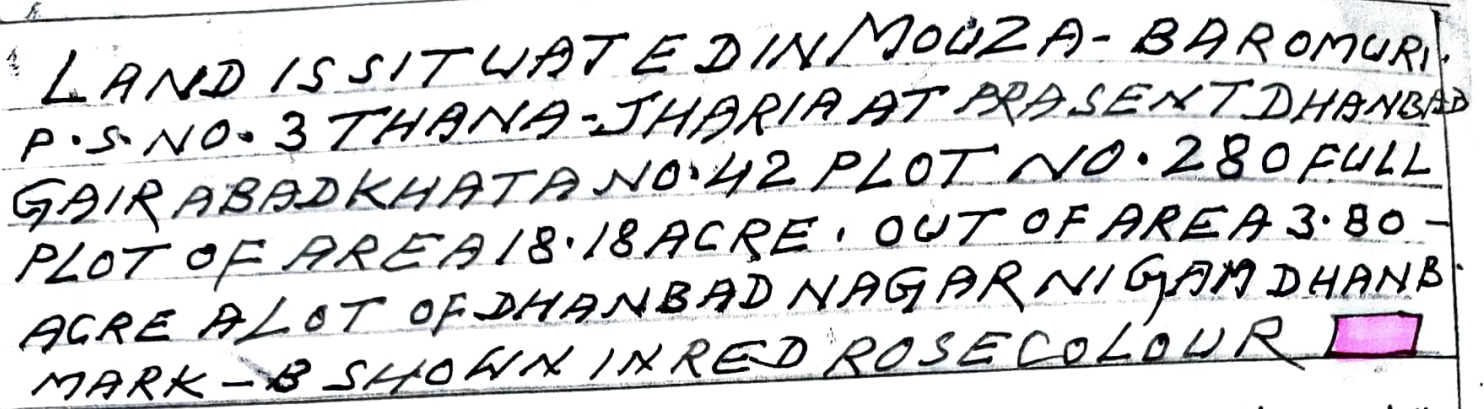 LAND IS SITUATED IN MOUZA - BAROMURI.
P.S. NO. 3 THANA - JHARIA AT PRASENT DHANBAD
GAIR ABAD KHATA NO. 42 PLOT NO. 280 FULL
PLOT OF AREA 18.18 ACRE. OUT OF AREA 3.80 -
ACRE ALOT OF DHANBAD NAGAR NIGAM DHANB
MARK - B SHOWN IN RED ROSE COLOUR